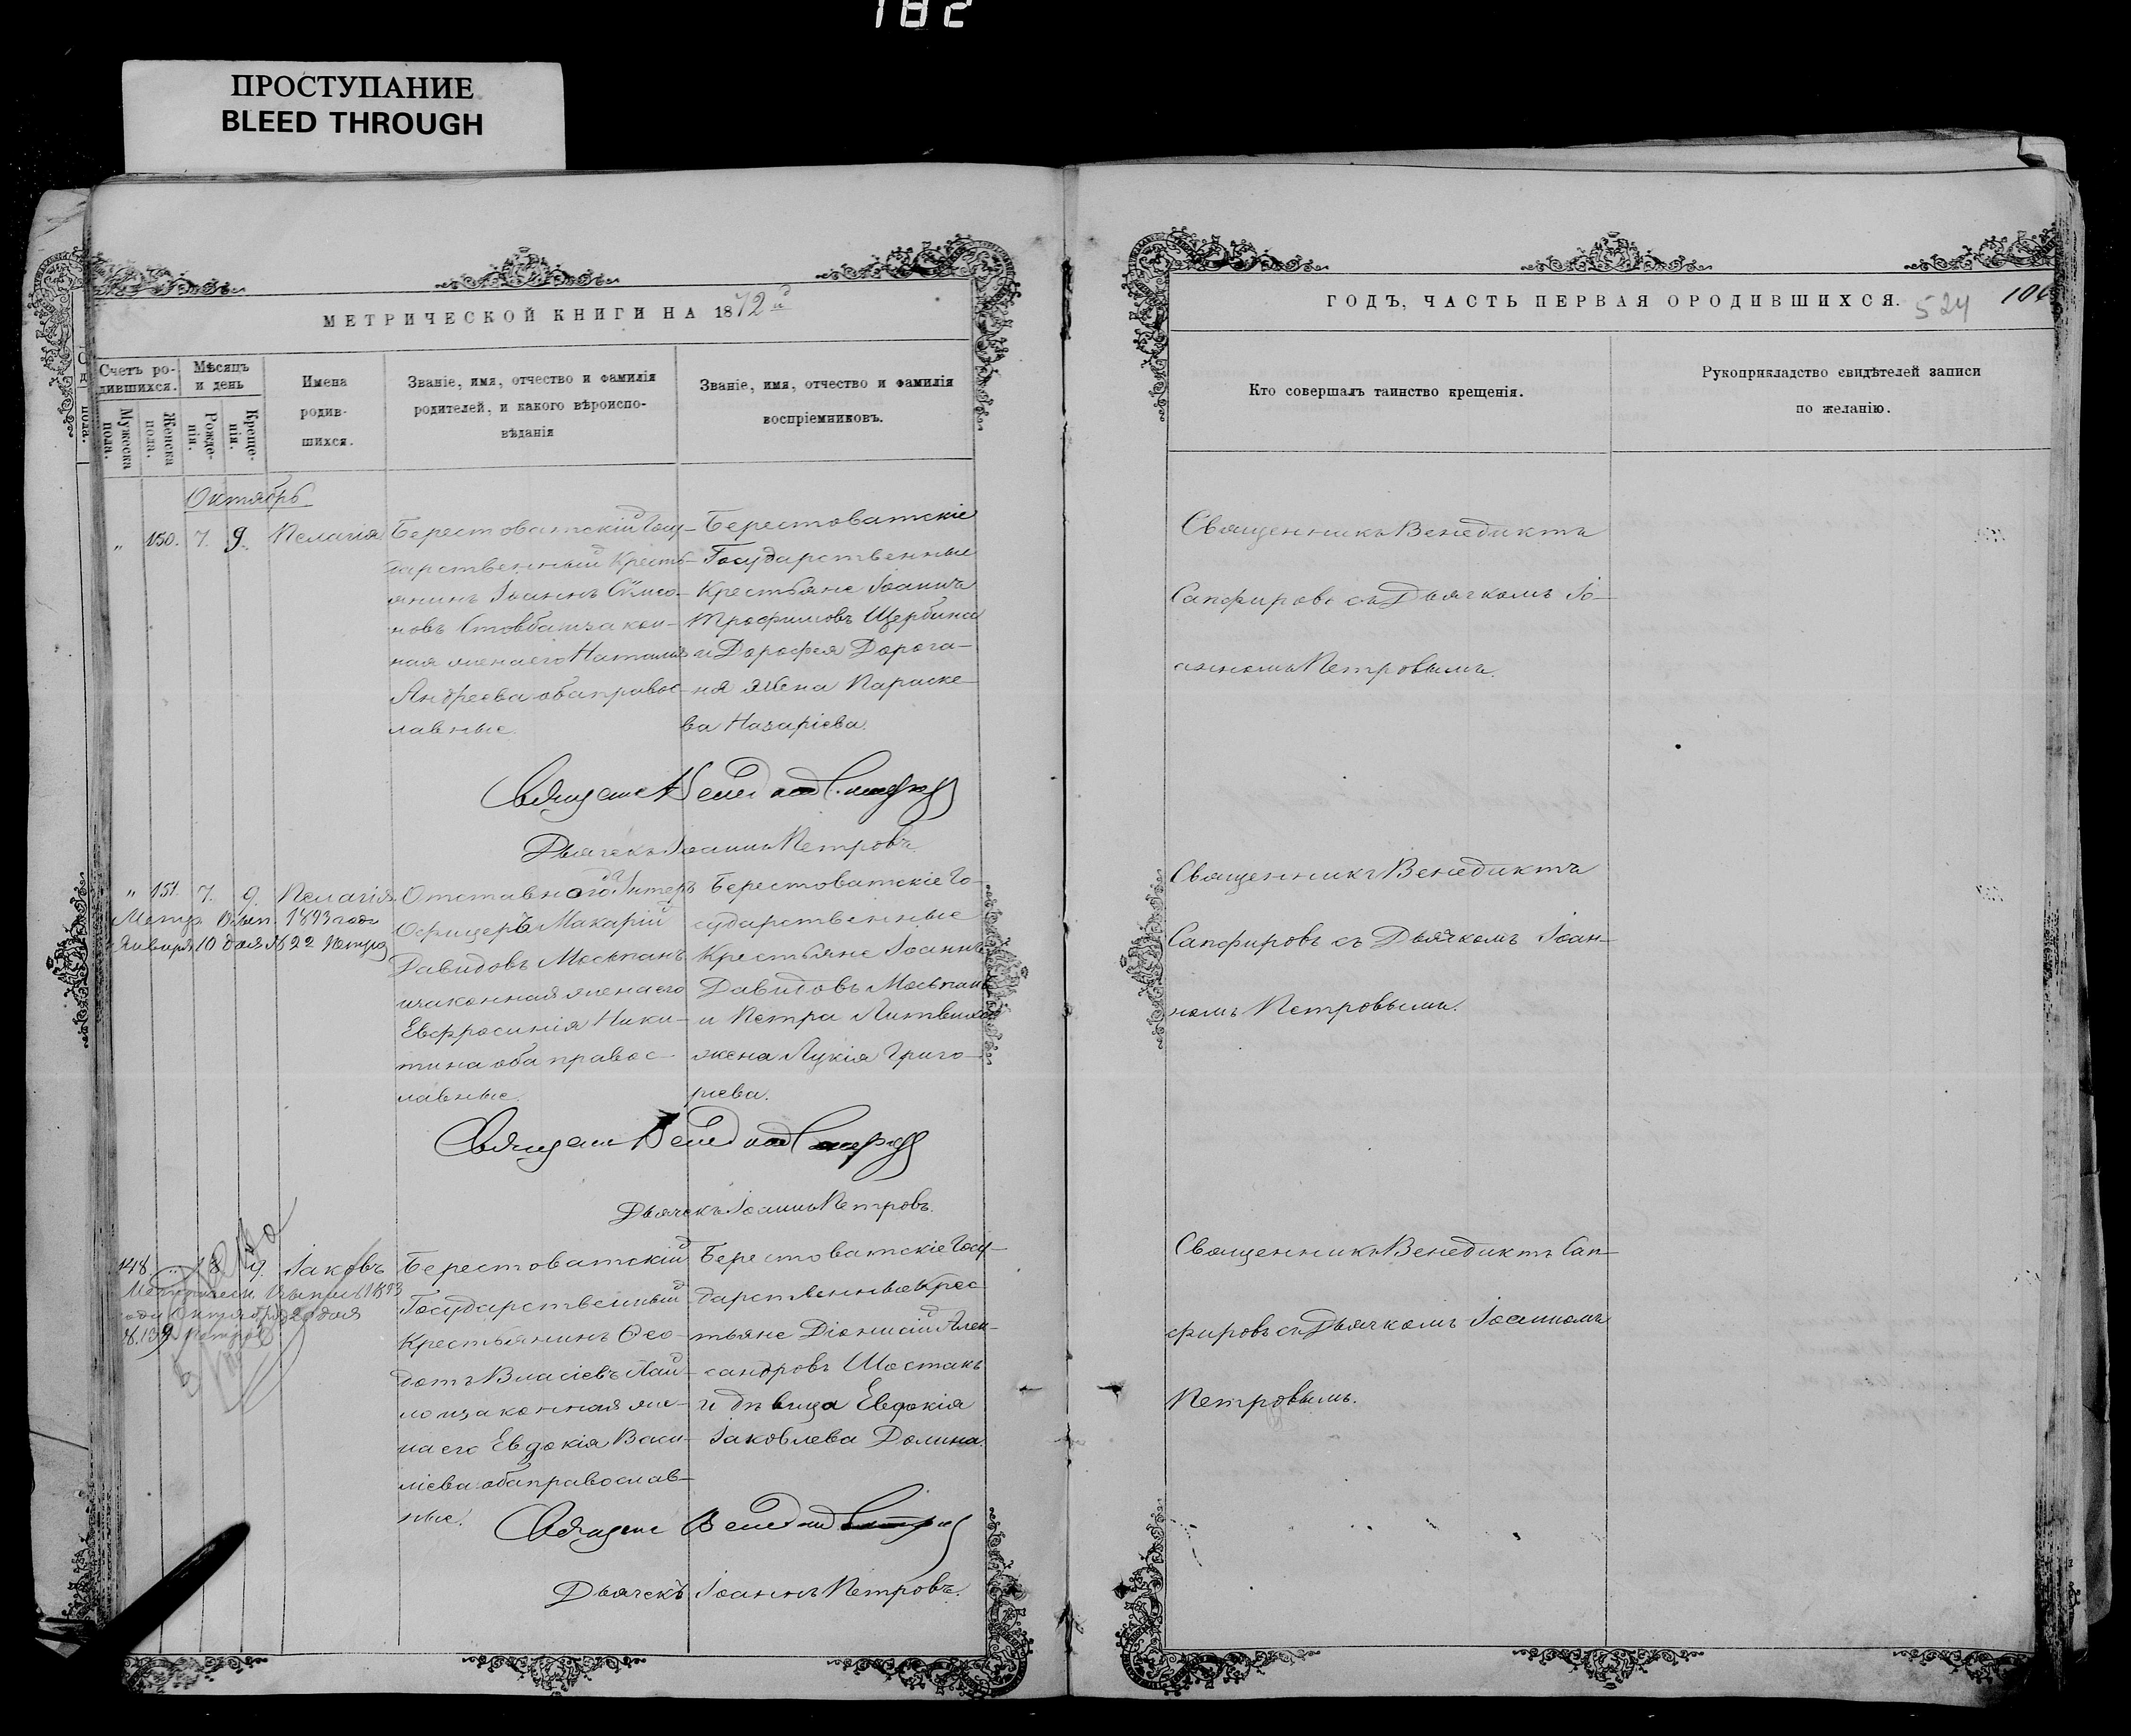 182
ПРОСТУПАНИЕ
BLEED THROUGH
МЕТРИЧЕСКОЙ КНИГИ НА 1872й
Счетъ ро-
дившихся.
Мужеска
пола.
Женска
пола.
Мѣсяцъ
и день
Рожде-
нія.
Креще-
нія.
Имена
родив-
шихся.
Званіе, имя, отчество и фамилія
родителей, и какого вѣроиспо-
вѣданія
Званіе, имя, отчество и фамилія
воспріемниковъ.
Октябрь
" 150. 7. 9. Пелагія
Берестоватскій Госу-
дарственный Кресть-
янинъ Іоаннъ
новъ закон-
ная жена его Наталія
Андреева оба правос-
лавные.
Берестоватскіе
Государственные
Крестьяне Іоаннъ
Трофимовъ Щербина
и Дорофея Дорога-
ня жена Параске-
ва Назаріева.
Дьячекъ Іоаннъ Петровъ.
" 151. 7. 9. Пелагія.
1893 года
Января 10 дня № 22
Отставной Унтеръ
Офицеръ Макарій
Давидовъ Моспанъ
и законная жена его
Евфросинія Ники-
тина оба правос-
лавные.
Берестоватскіе Го-
сударственные
Крестьяне Іоаннъ
Давидовъ Моспанъ
и Петра Литвина
жена Лукія Григо-
рьева.
Дьячекъ Іоаннъ Петровъ.
148 " 8 9. Іаковъ
Берестоватскій
Государственный
Крестьянинъ Ѳео-
дотъ Власіевъ
и законная же-
на его Евдокія Васи-
ліева оба православ-
ные.
Берестоватскіе Госу-
дарственные Крес-
тьяне Діонисій Алек-
сандровъ Шостакъ
и дѣвица Евфокія
Іаковлева Долина.
Дьячекъ Іоаннъ Петровъ.
ГОДЪ, ЧАСТЬ ПЕРВАЯ О РОДИВШИХСЯ.
524
Кто совершалъ таинство крещенія.
Рукоприкладство свидѣтелей записи
по желанію.
Священникъ Венедиктъ
Сапфировъ съ Дьячкомъ Іо-
анномъ Петровымъ.
Священникъ Венедиктъ
Сапфировъ съ Дьячкомъ Іоан-
номъ Петровымъ.
Священникъ Венедиктъ Сап-
фировъ съ Дьячкомъ Іоанномъ
Петровымъ.